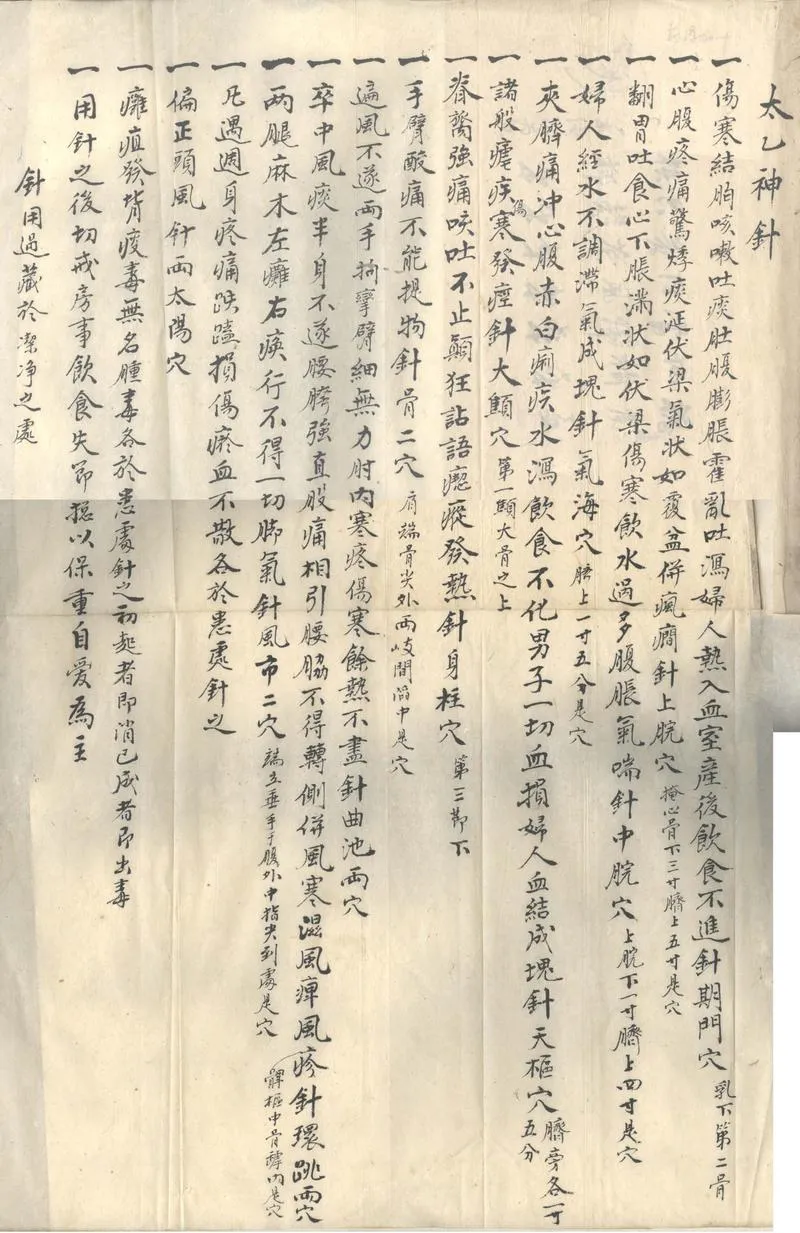 太乙神針
一傷寒結胸咳嗽吐痰肚腹膨脹霍亂吐瀉婦人熱入血室產後飲食不進針期門穴 乳下第二骨
一心腹疼痛驚悸痰涎伏梁氣状如覆盆併瘋癇針上脘穴 掩心骨下三寸臍上五寸是穴
一翻胃吐食心下脹滿状如伏梁傷寒飲水過多腹脹氣喘針中脘穴 上脘下一寸臍上四寸是穴
一婦人經水不調滯氣成塊針氣海穴 臍上一寸五分是穴
一夾臍痛冲心腹赤白痢疾水瀉飲食不化男子一切血損婦人血結成塊針天樞穴 臍旁各一寸五分
一諸般瘧疾傷寒發痙針大顀穴 第一顀大骨之上
一脊膂強痛咳吐不止顛狂詀語瘛瘲發熱針身柱穴 第三節下
一手臂酸痛不能提物針骨二穴 肩端骨尖外兩岐間陷中是穴
一遍風不遂兩手拘攣臂細無力肘内寒疼傷寒餘熱不盡針曲池兩穴
一卒中風痰半身不遂腰胯強直股痛相引腰脇不得轉側併風寒濕風痺風疹針環跳兩穴 髀樞中骨罅内是穴
一两腿麻木左癱右瘓行不得一切脚氣針風市二穴 端立垂手于腹外中指尖到處是穴
一凡遇週身疼痛跌磕損傷瘀血不散各於患處針之
一偏正頭風針兩太陽穴
一癰疽發背痰毒無名腫毒各於患處針之初起者即消已成者即出毒
一用針之後切戒房事飲食失節總以保重自愛為主
針用過藏於潔净之處